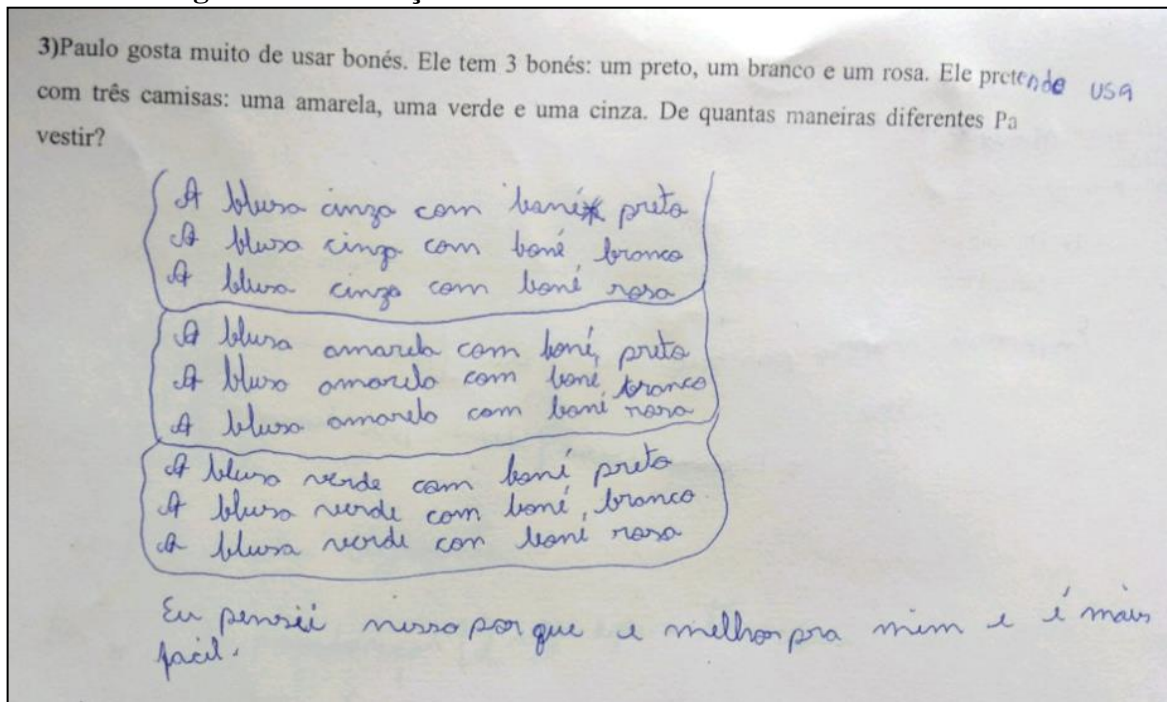 3)Paulo gosta muito de usar bonés. Ele tem 3 bonés: um preto, um branco e um rosa. Ele pretende usa
com três camisas: uma amarela, uma verde e uma cinza. De quantas maneiras diferentes Pa
vestir?
A blusa cinza com boné preto
A blusa cinza com boné branco
A blusa cinza com boné rosa
A blusa amarela com boné preto
A blusa amarela com boné branco
A blusa amarela com boné rosa
A blusa verde com boné preto
A blusa verde com boné branco
A blusa verde con boné rosa
Eu pensei nisso por que e melhor pra mim e é mais
facil.